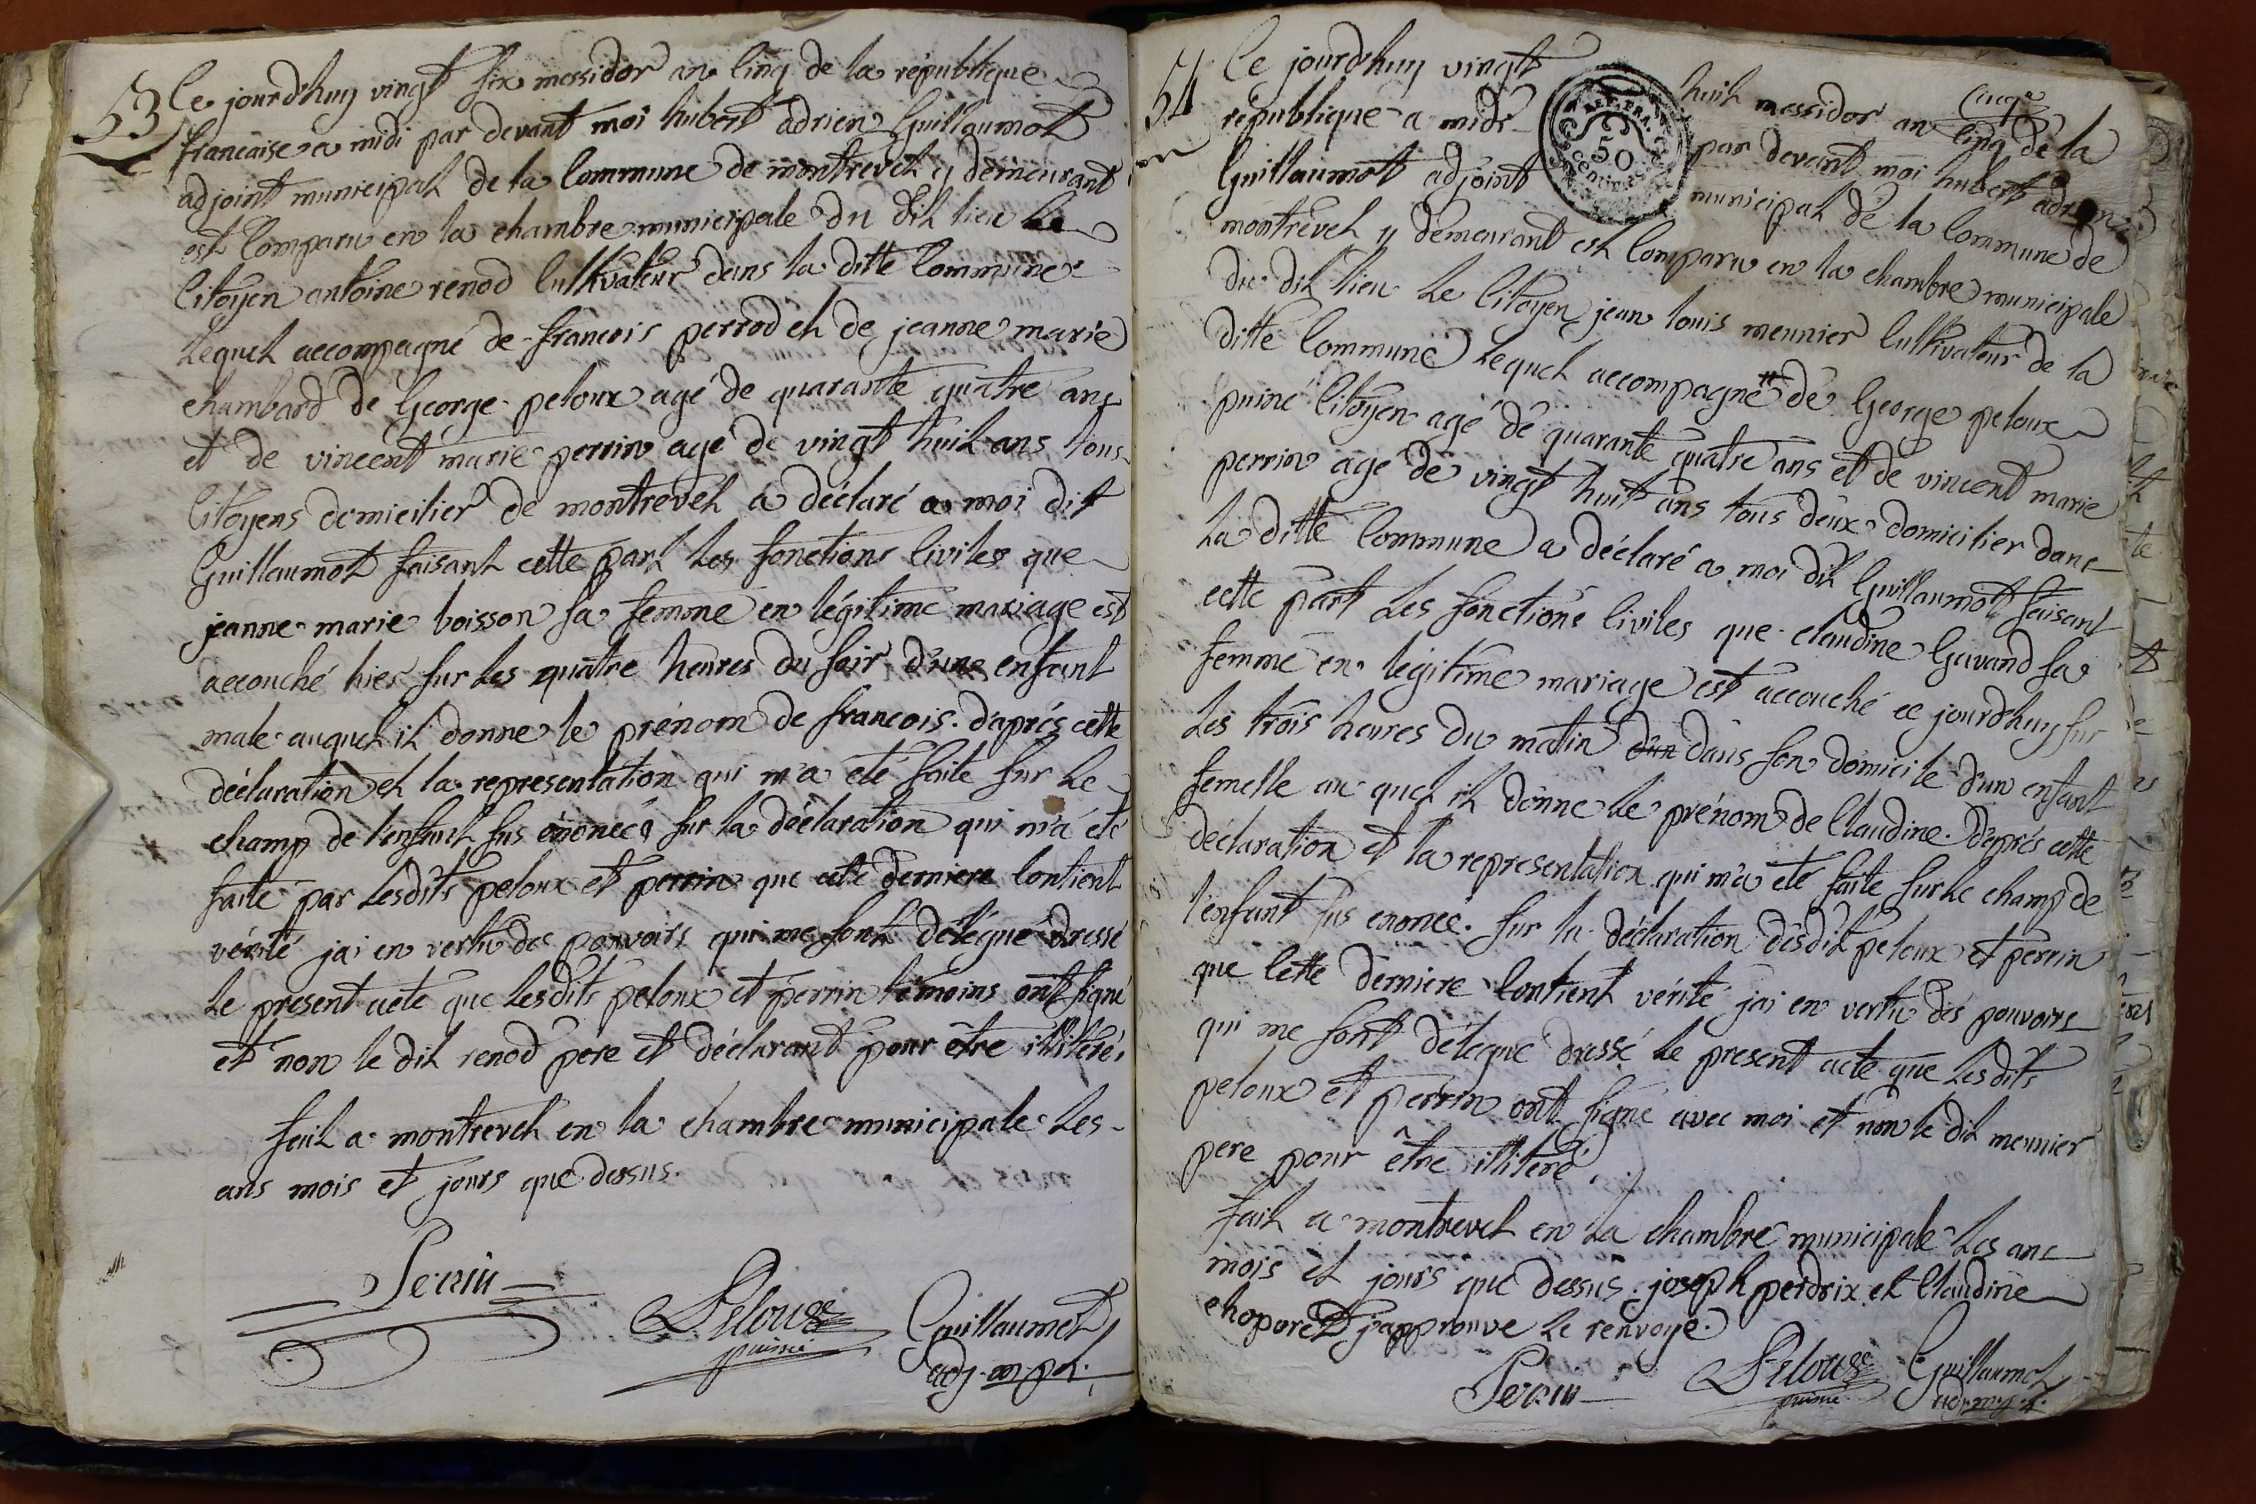 53
Ce jourdhuy vingt six messidor an cinq de la république
francaise a midi par devant moi hubert adrien Guillaumot
adjoint municipal de la Commune de montrevel y demeurant
est Comparu en la chambre municipale du dit lieu le
Citoyen antoine renod Cultivateur dans la ditte Commune
Lequel accompagné de francois perrod et de jeanne marie
chambard de George peloux agé de quarante quatre ans
et de vincent marie perrin agé de vingt huit ans tous
Citoyens domicilier de montrevel a déclaré a moi dit
Guillaumot faisant cette part les fonctions Civiles que
jeanne marie boisson sa femme en légitime mariage est
accouché hier sur les quatre heures du soir d'une enfant
male auquel il donne le prénom de francois. d'aprés cette
déclaration et la representation qui m'a été faite sur le
champ de l'enfant sus énoncé sur la déclaration qui m'a été
faite par Lesdits peloux et perrin que cette derniere Contient
vérité jai en vertu des pouvoirs qui me sont délégué dressé
Le present acte que Lesdits peloux et perrin témoins ont signé
et non le dit renod pere et déclarant pour être illiteré,
fait a montrevel en la chambre municipale Les
ans mois et jours que dessus.
Perrin
Peloux
puiné
Guillaumot
adj. m.pal.
54
Ce jourdhuy vingt huit messidor an cinq de la
Cinq
REP. FRA.
50
CENTIMES
république a midi par devant moi hubert adrien
Guillaumot adjoint municipal de la Commune de
montrevel y demeurant est Comparu en la chambre municipale
du dit lieu Le Citoyen jean louis meunier Cultivateur de la
ditte Commune Lequel accompagné # de George peloux
puiné Citoyen agé de quarante quatre ans et de vincent marie
perrin agé de vingt huit ans tous deux domicilier dans
La ditte Commune a déclaré a moi dit Guillaumot faisant
cette part Les fonctions Civiles que claudine Gavand sa
femme en légitime mariage est accouché ce jourdhuy sur
Les trois heures du matin d'un dans son domicile d'un enfant
femelle au quel il donne Le prénom de Claudine. D'aprés cette
déclaration et la representation qui m'a été faite sur Le champ de
l'enfant sus énoncé. Sur la déclaration desdit peloux et perrin
que Cette derniere Contient vérité jai en vertu des pouvoirs
qui me sont délegué dressé Le present acte que Lesdits
peloux et perrin ont signé avec moi et non le dit meunier
pere pour être illiteré.
fait a montrevel en La chambre municipale Les ans
mois et jours que dessus. joseph perdrix et Claudine
choparet j'approuve Le renvoye.
Perrin
Peloux
puiné
Guillaumot